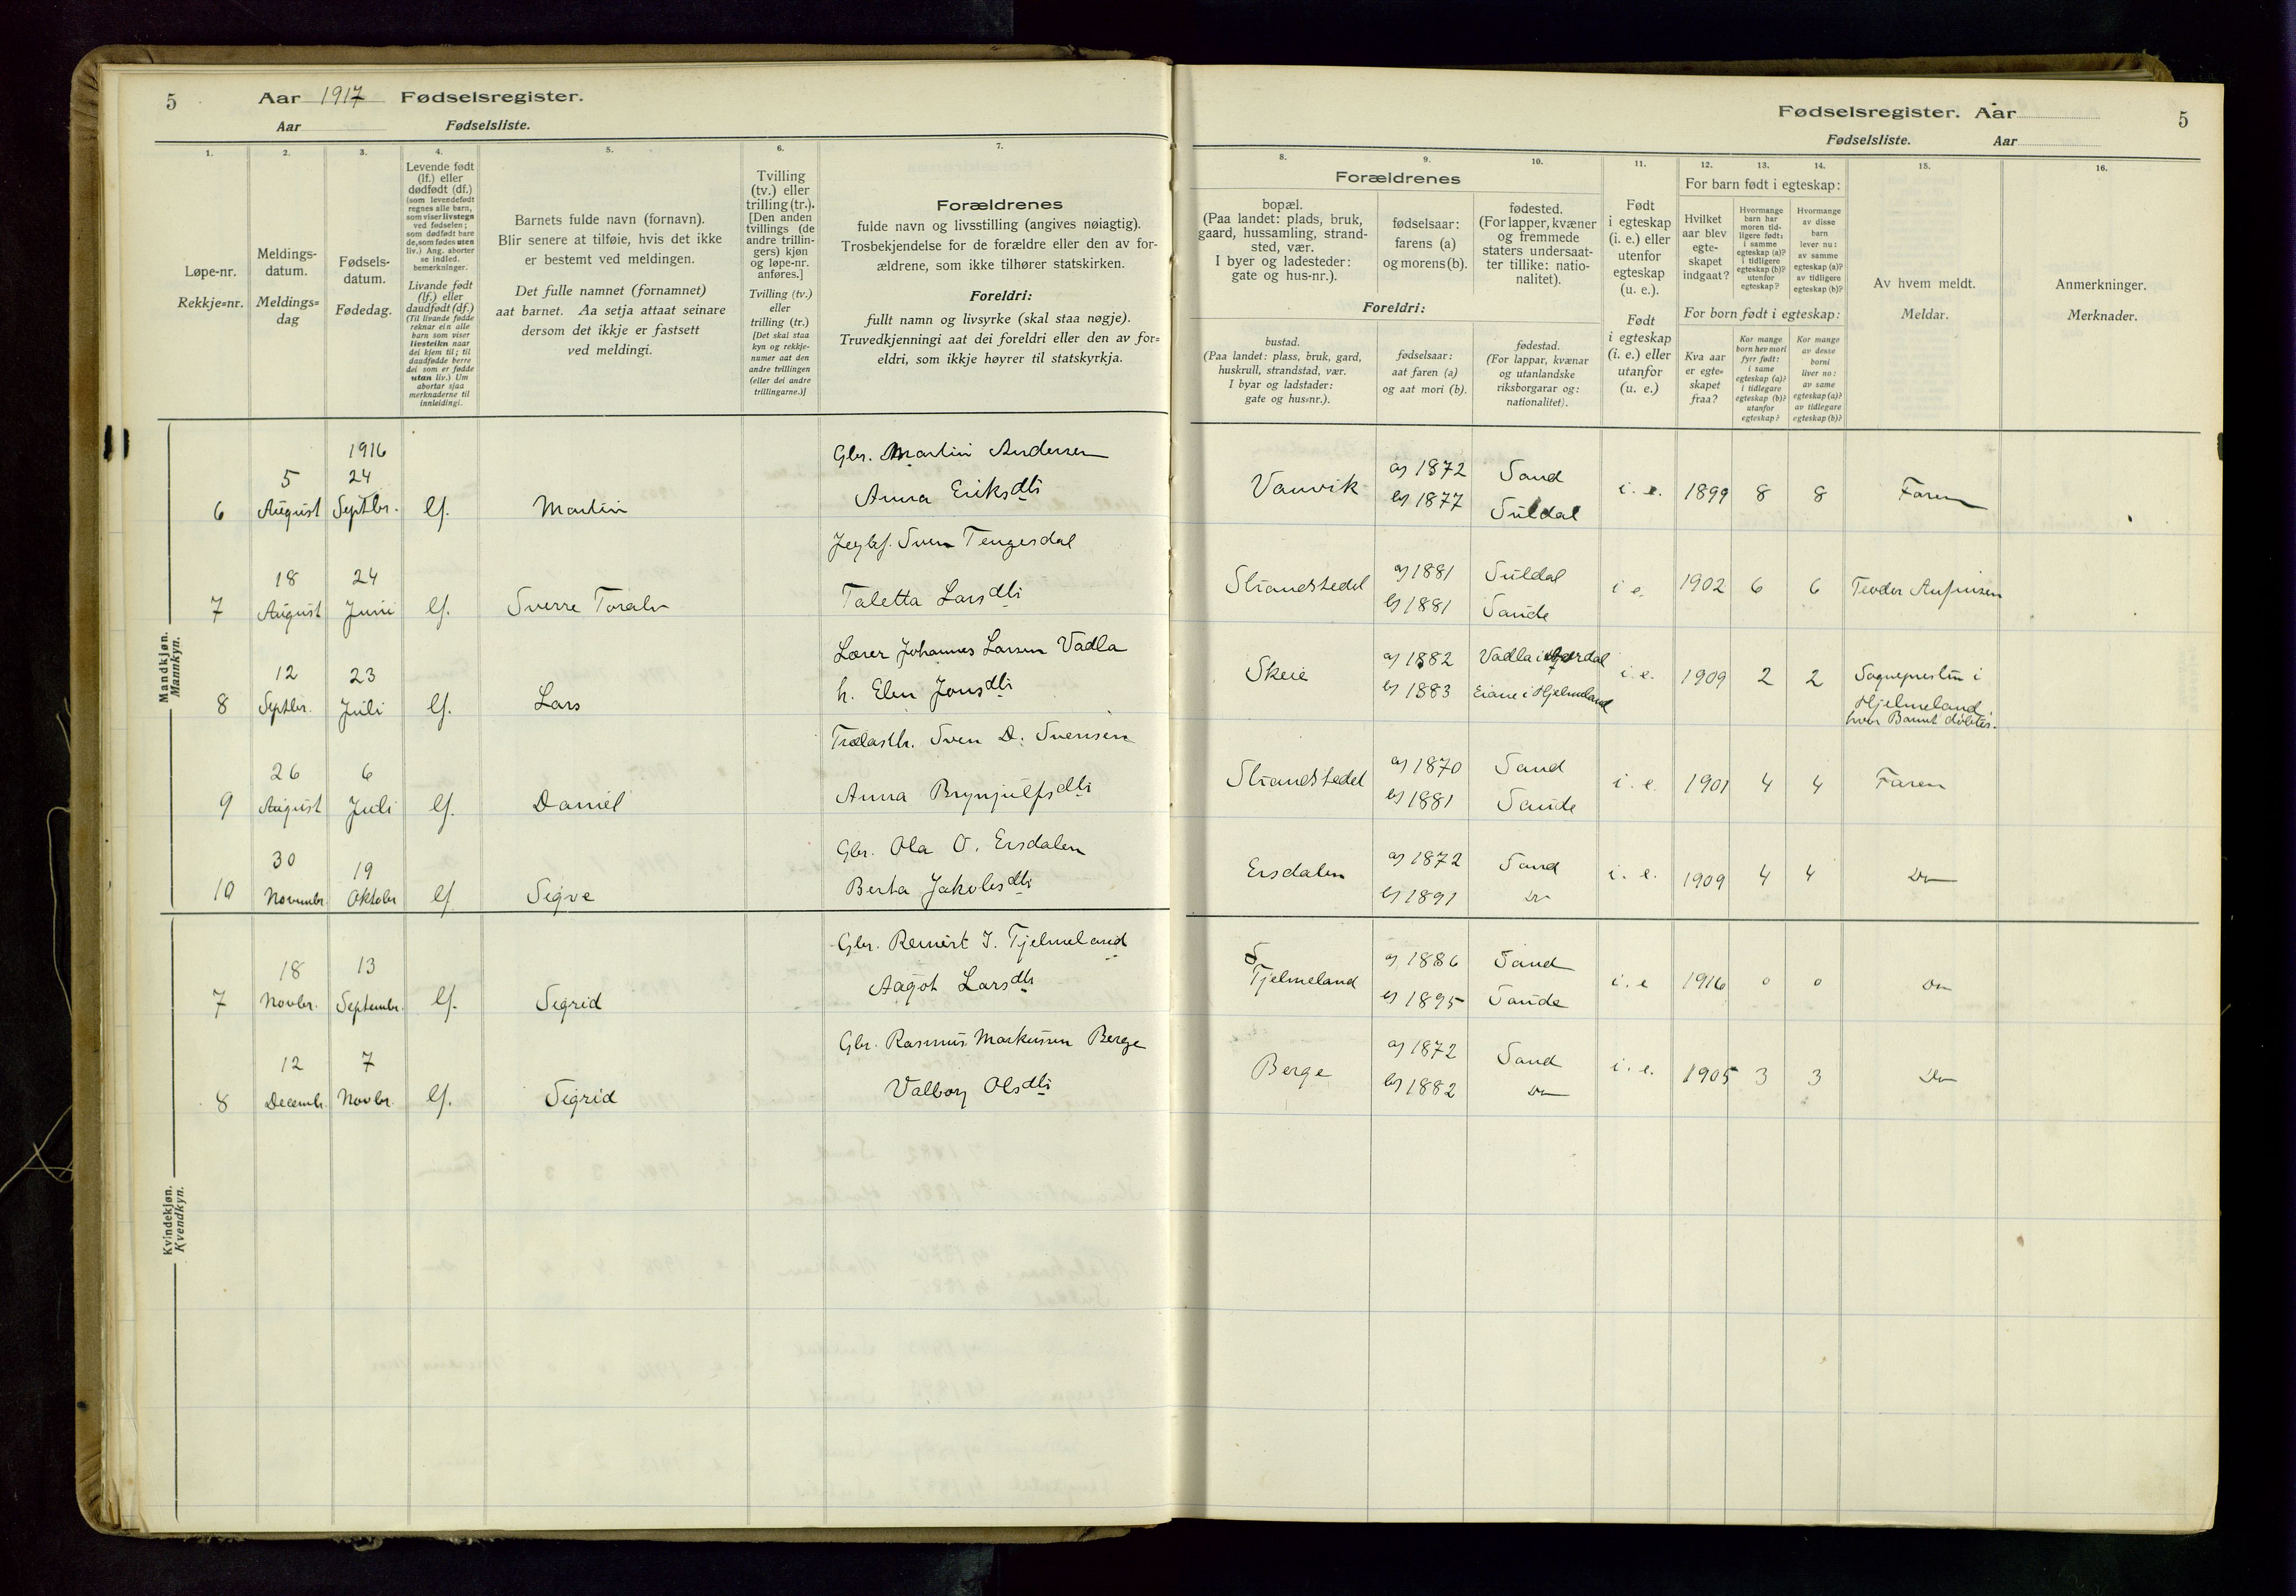 5
Aar 1917 Fødselsregister.
Aar Fødselsliste.
1.
2.
3.
4.
5.
6.
7.
Løpe-nr.
Rekkje=nr.
Meldings-
datum.
Meldings=
dag
Fødsels-
datum.
Fødedag.
Levende født
(lf.) eller
dødfødt (df.)
(som levendefødt
regnes alle barn,
som viser livstegn
ved fødselen;
som dødfødt bare
de, som fødes uten
liv.) Ang. aborter
se indled.
bemerkninger.
Livande født
(lf.) eller
daudfødt (df.)
(Til livande fødde
reknar ein alle
barn som viser
livsteikn naar
dei kjem til; til
daudfødde berre
dei som er fødde
utan liv.) Um
abortar sjaa
merknaderne til
innleidingi.
Barnets fulde navn (fornavn).
Blir senere at tilføie, hvis det ikke
er bestemt ved meldingen.
Det fulle namnet (fornamnet)
aat barnet. Aa setja attaat seinare
dersom det ikkje er fastsett
ved meldingi.
Tvilling
(tv.) eller
trilling (tr.).
[Den anden
tvillings (de
andre trillin-
gers) kjøn
og løpe-nr.
anføres.]
Tvilling (tv.)
eller
trilling (tr.)
[Det skal staa
kyn og rekkje-
numer aat den
andre tvillingen
(eller dei andre
trillingarne.)]
Forældrenes
fulde navn og livsstilling (angives nøiagtig).
Trosbekjendelse for de forældre eller den av for-
ældrene, som ikke tilhører statskirken.
Foreldri:
fullt namn og livsyrke (skal staa nøgje).
Truvedkjenningi aat dei foreldri eller den av for=
eldri, som ikkje høyrer til statskyrkja.
Mandkjøn.
Mannkyn.
1916
5 24
6 August Septbr. lf. Martin
Gbr. Martin Andersen
Anna Eriksdtr
18 24
7 August Juni lf. Sverre Toralv
Sven Tengesdal
Taletta Larsdtr
12 23
8 Septbr. Juli lf. Lars
Lærer Johannes Larsen Vadla
h. Elen Jonsdtr
26 6
9 August Juli lf. Daniel
Trælasth. Sven D. Svensen
Anna Brynjulfsdtr
30 19
10 Novembr. Oktobr lf. Sigve
Gbr. Ola O. Ersdalen
Berta Jakobsdtr
Kvindekjøn.
Kvendkyn.
18 13
7 Novbr. Septembr. lf. Sigrid
Gbr. Reinert J. Tjelmeland
Aagot Larsdtr
12 7
8 Decembr. Novbr. lf. Sigrid
Gbr. Rasmus Markussen Berge
Valborg Olsdtr
Fødselsregister. Aar 5
Fødselsliste. Aar
8.
9.
10.
11.
12.
13.
14.
15.
16.
Forældrenes
bopæl.
(Paa landet: plads, bruk,
gaard, hussamling, strand-
sted, vær.
I byer og ladesteder:
gate og hus-nr.).
fødselsaar:
farens (a)
og morens (b).
fødested.
(For lapper, kvæner
og fremmede
staters undersaat-
ter tillike: natio-
nalitet).
Foreldri:
bustad.
(Paa landet: plass, bruk, gard,
huskrull, strandstad, vær.
I byar og ladstader:
gate og hus=nr.).
fødselsaar:
aat faren (a)
og aat mori (b).
fødestad.
(For lappar, kvænar
og utanlandske
riksborgarar og:
nationalitet).
Født
i egteskap
(i. e.) eller
utenfor
egteskap
(u. e.).
Født
i egteskap
(i. e.) eller
utanfor
(u. e.)
For barn født i egteskap:
Hvilket
aar blev
egte-
skapet
indgaat?
Hvormange
barn har
moren tid-
ligere født:
i samme
egteskap (a)?
i tidligere
egteskap (b)?
utenfor
egteskap?
Hvormange
av disse
barn
lever nu:
av samme
egteskap (a)?
av tidligere
egteskap (b)?
For born født i egteskap:
Kva aar
er egte=
skapet
fraa?
Kor mange
born hev mori
fyrr født:
i same
egteskap (a)?
i tidlegare
egteskap (b)?
utanfor
egteskap?
Kor mange
av desse
borni
liver no:
av same
egteskap (a)?
av tidlegare
egteskap (b)?
Av hvem meldt.
Meldar.
Anmerkninger.
Merknader.
Vanvik a) 1872 Sand i. e. 1899 8 8 Faren
b) 1877 Suldal
Strandstedet a) 1881 Suldal i e. 1902 6 6 Teodor
b) 1881 Saude
Skeie a) 1882 Vadla i i. e. 1909 2 2 Sognepresten i
b) 1883 Eiane i Hjelmeland Hjelmeland,
hvor Barnet døbtes.
Strandstedet a) 1870 Sand i. e. 1901 4 4 Faren
b) 1881 Saude
Ersdalen a) 1872 Sand i. e. 1909 4 4 Do
b) 1891 Do
Tjelmeland a) 1886 Sand i. e 1916 0 0 Do
b) 1895 Saude
Berge a) 1872 Sand i. e. 1905 3 3 Do
b) 1882 Do